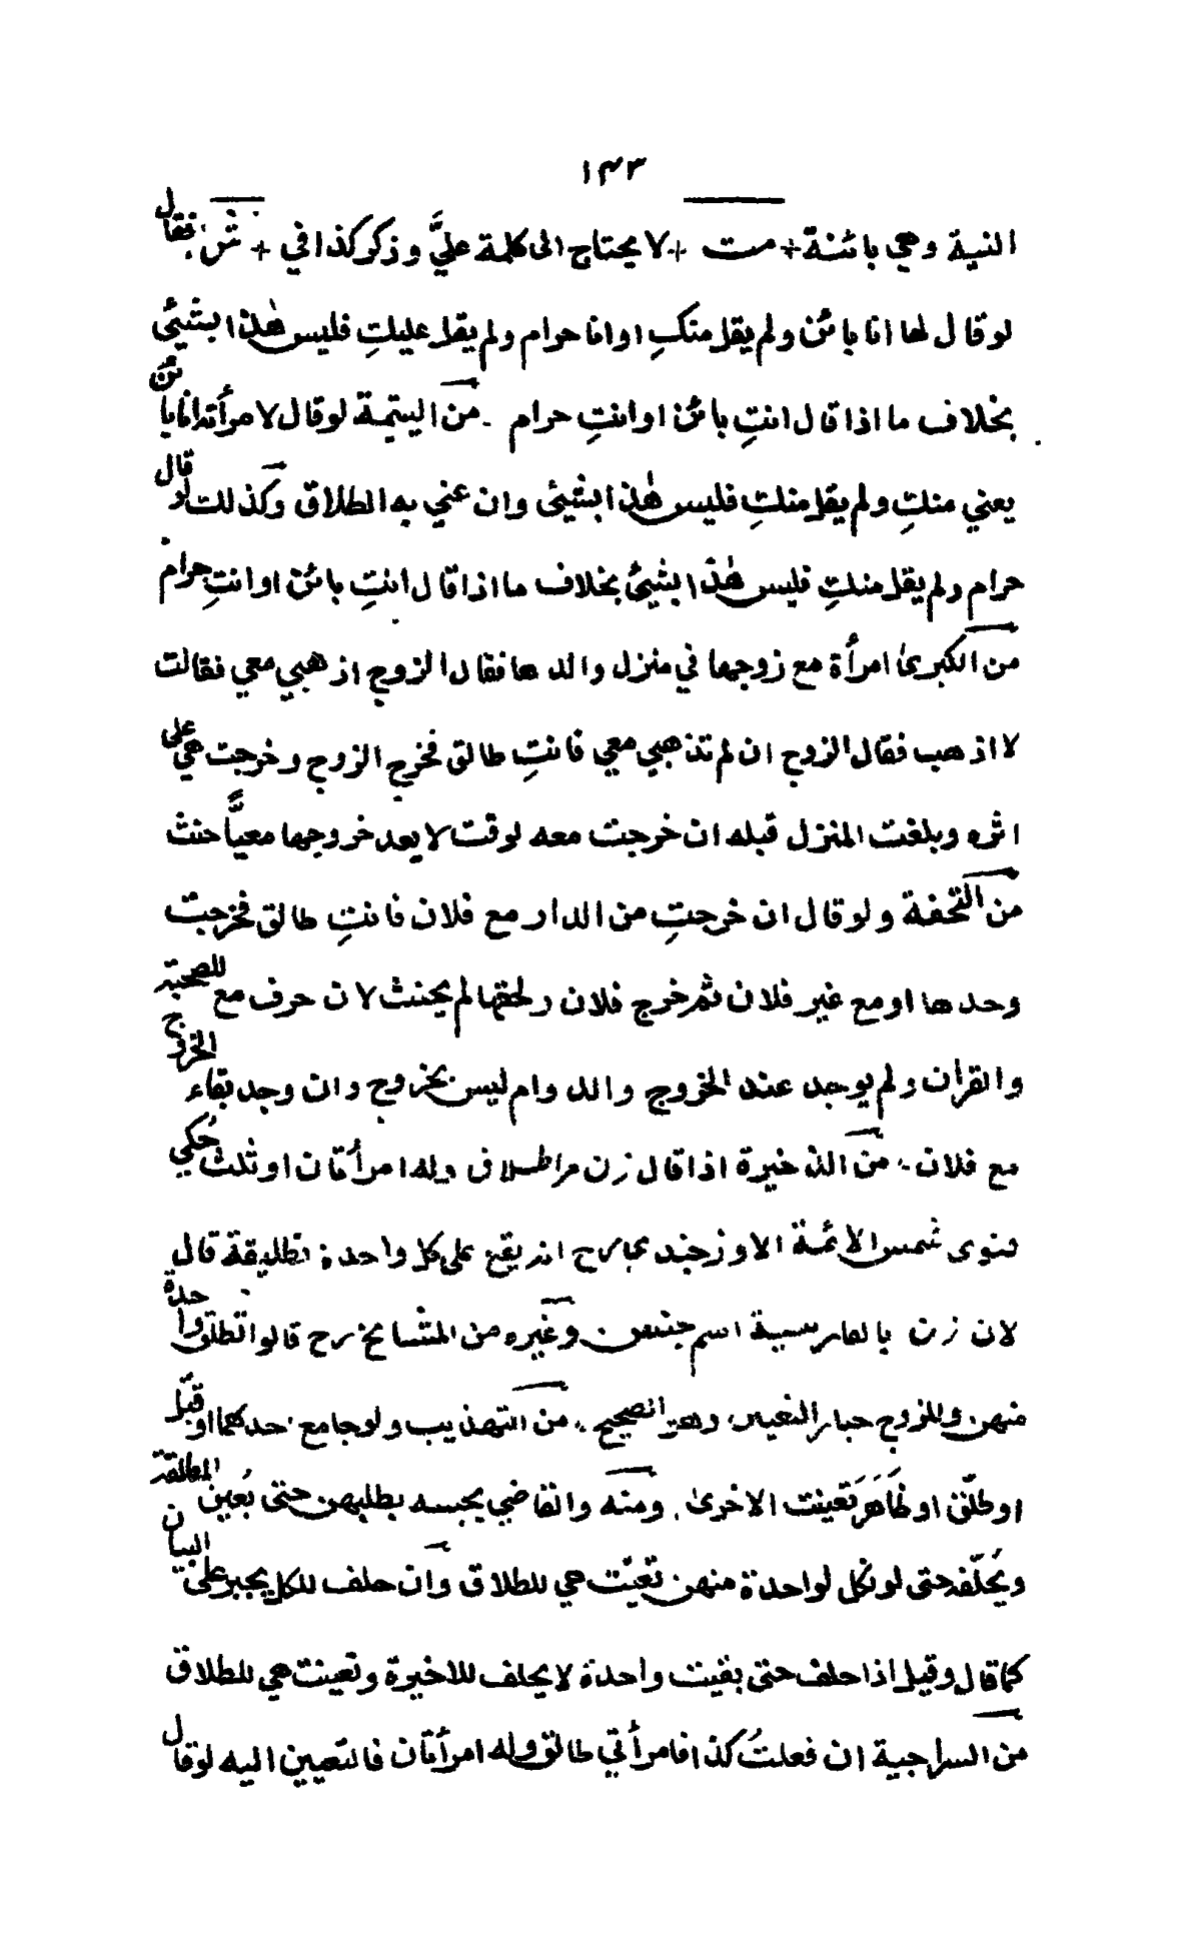 ١٤٣
النية وهي بائنة + مت + لا يحتاج الى كلمة عليَّ وذكر كذا في + شن فقال
لو قال لها انا بائن ولم يقل منكِ او انا حرام ولم يقل عليكِ فليس هٰذا بشيئ
بخلاف ما اذا قال انتِ بائن او انتِ حرام . من اليتيمة لو قال لامرأته انا بائن
يعني منكِ ولم يقل منكِ فليس هٰذا بشيئ وان عني به الطلاق وكذلك لو قال
حرام ولم يقل منكِ فليس هٰذا بشيئ بخلاف ما اذا قال انتِ بائن او انتِ حرام
من الكبرىٰ امرأة مع زوجها في منزل والدها فقال الزوج اذهبي معي فقالت
لا اذهب فقال الزوج ان لم تذهبي معي فانتِ طالق فخرج الزوج وخرجت هي على
اثره وبلغت المنزل قبله ان خرجت معه لوقت لا يعد خروجها معيًّا حنث
من التحفة ولو قال ان خرجتِ من الدار مع فلان فانتِ طالق فخرجت
وحدها او مع غير فلان ثم خرج فلان ولحقها لم يحنث لان حرف مع للصحبة
والقران ولم يوجد عند الخروج والدوام ليس بخروج وان وجد بقاء الخروج
مع فلان . من الذخيرة اذا قال زن مرا طلاق وله امرأتان او ثلث حُكي
فتوى شمس الائمة الاوزجندي رح انه يقع على كل واحدة تطليقة قال
لان زن بالفارسية اسم جنس وغيره من المشايخ رح قالوا تطلق واحدة
منهن وللزوج خيار التعيين وهو الصحيح . من التهذيب ولو جامع احدهما او قبّل
او طلّق او ظَاهَرَ تعينت الاخرىٰ . ومنه والقاضي يحبسه بطلبهن حتى يُعين المطلقة
ويُحلّفه حتى لو نكل لواحدة منهن تعيّنت هي للطلاق وان حلف للكل يجبر على البيان
كما قال وقيل اذا حلف حتى بقيت واحدة لا يحلف للاخيرة وتعينت هي للطلاق
من السراجية ان فعلتُ كذا فامرأتي طالق وله امرأتان فالتعيين اليه لو قال